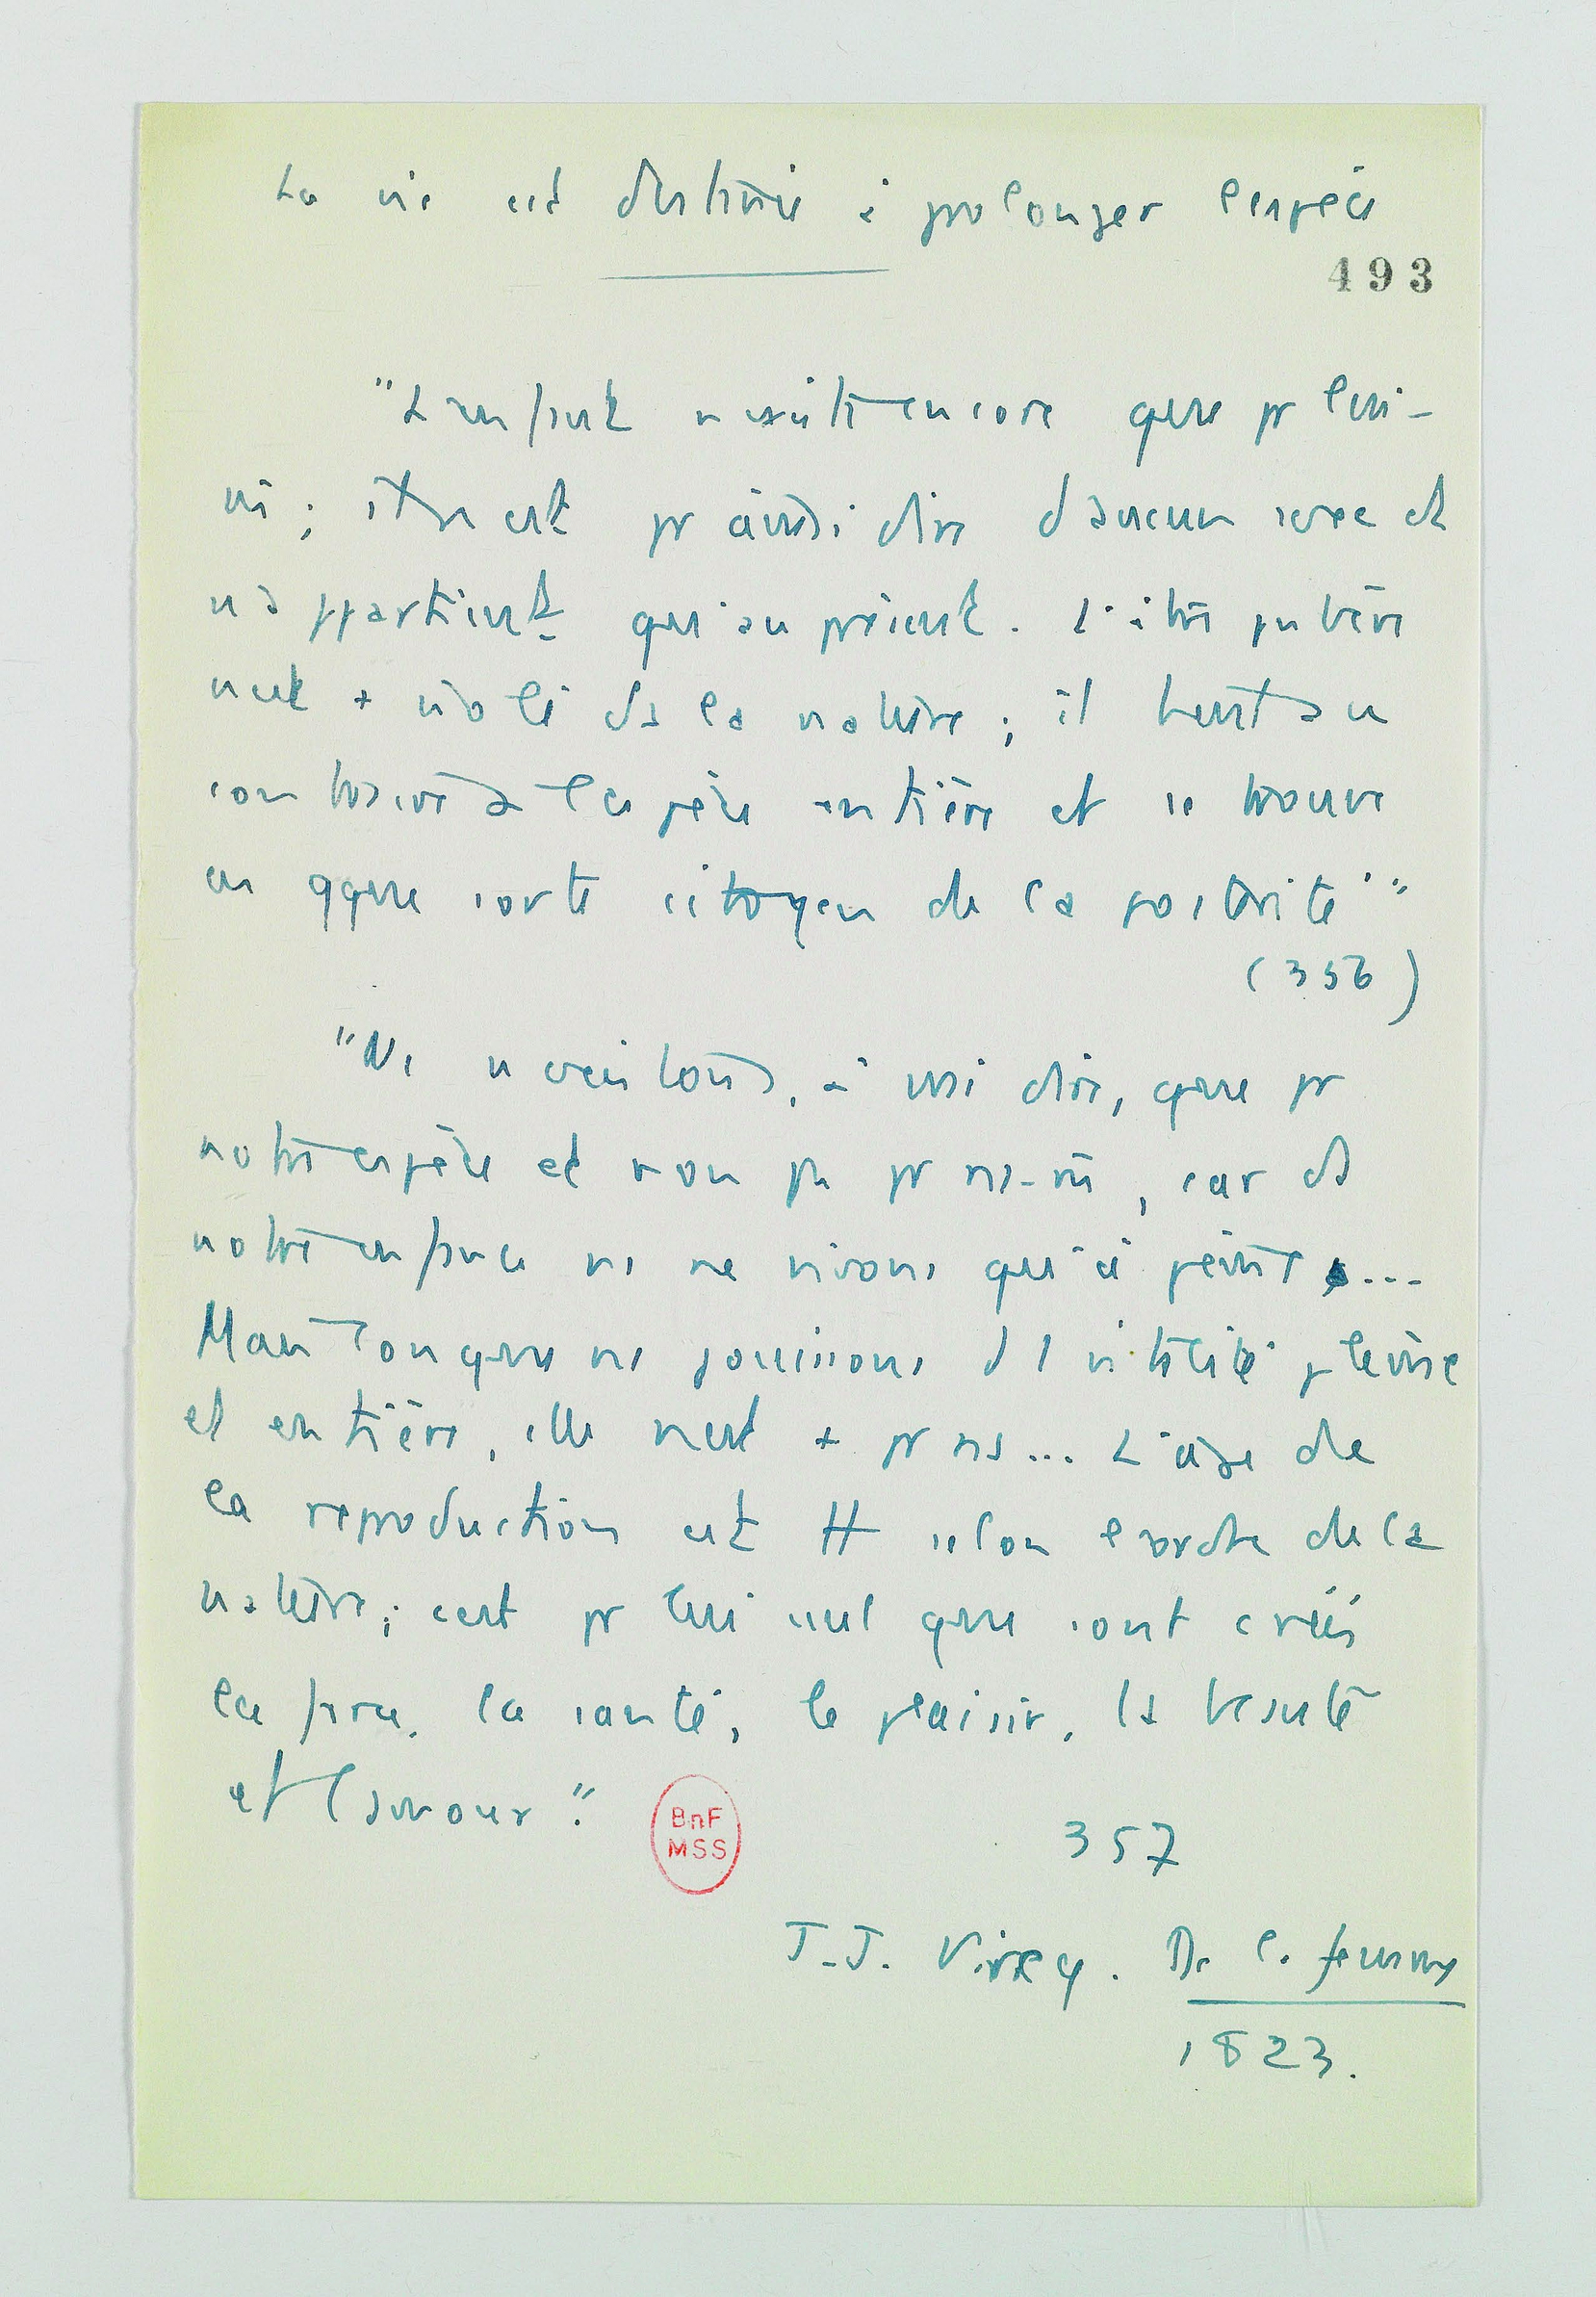 La vie est destinée à prolonger l'espèce
493
"L'enfant n'existe encore que pr lui-
m̂ ; il n'est pr ainsi dire d'aucun sexe et
n'appartient qu'au présent. L'être pubère
n'est + isolé ds la nature ; il tient au
contraire à l'espèce entière et se trouve
en qque sorte citoyen de la postérité"
(356)
"Ns n'existons, à vrai dire, que pr
notre espèce et non pas pr ns-m̂, car ds
notre enfance ns ne vivons qu'à peine ...
Maint lorsque ns jouissons d'1 vitalité pleine
et entière, elle n'est + pr ns... L'âge de
la reproduction est tt selon l'ordre de la
nature ; c'est pr lui seul que sont créés
la force, la santé, le plaisir, la beauté
et l'amour."
BnF
MSS
357
J.-J. Virey. De la femme
1823.